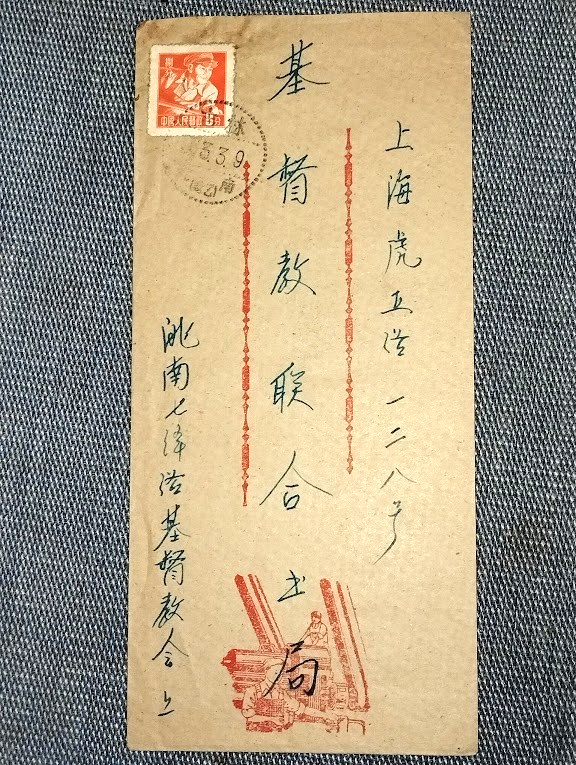 上海虎丘路一二八号
基督教联合书局
洮南七纬路基督教会上
中国人民邮政 8分
林
3.3.9
南